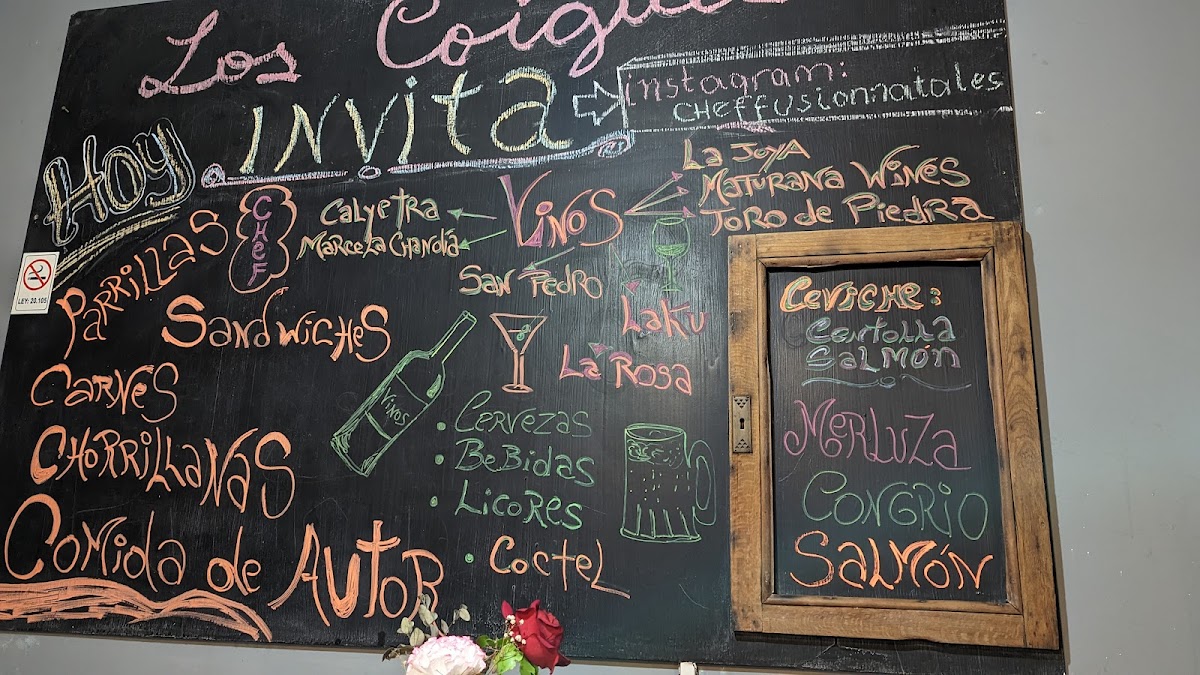 Los
INVITA
instagram:
CHEFFUSIONNATALES
Hoy
CHEF
PARRILLAS
SANDWICHES
CARNES
CHORRILLANAS
COMIDA de AUTOR
VINOS
CALYETRA
MARCELA CHANDÍA
SAN PEDRO
LA JOYA
MATURANA WINES
TORO de PIEDRA
LAKU
LA ROSA
VINOS
• CERVEZAS
• BEBIDAS
• LICORES
• COCTEL
CEVICHE:
CENTOLLA
SALMÓN
MERLUZA
CONGRIO
SALMÓN
LEY: 20.105